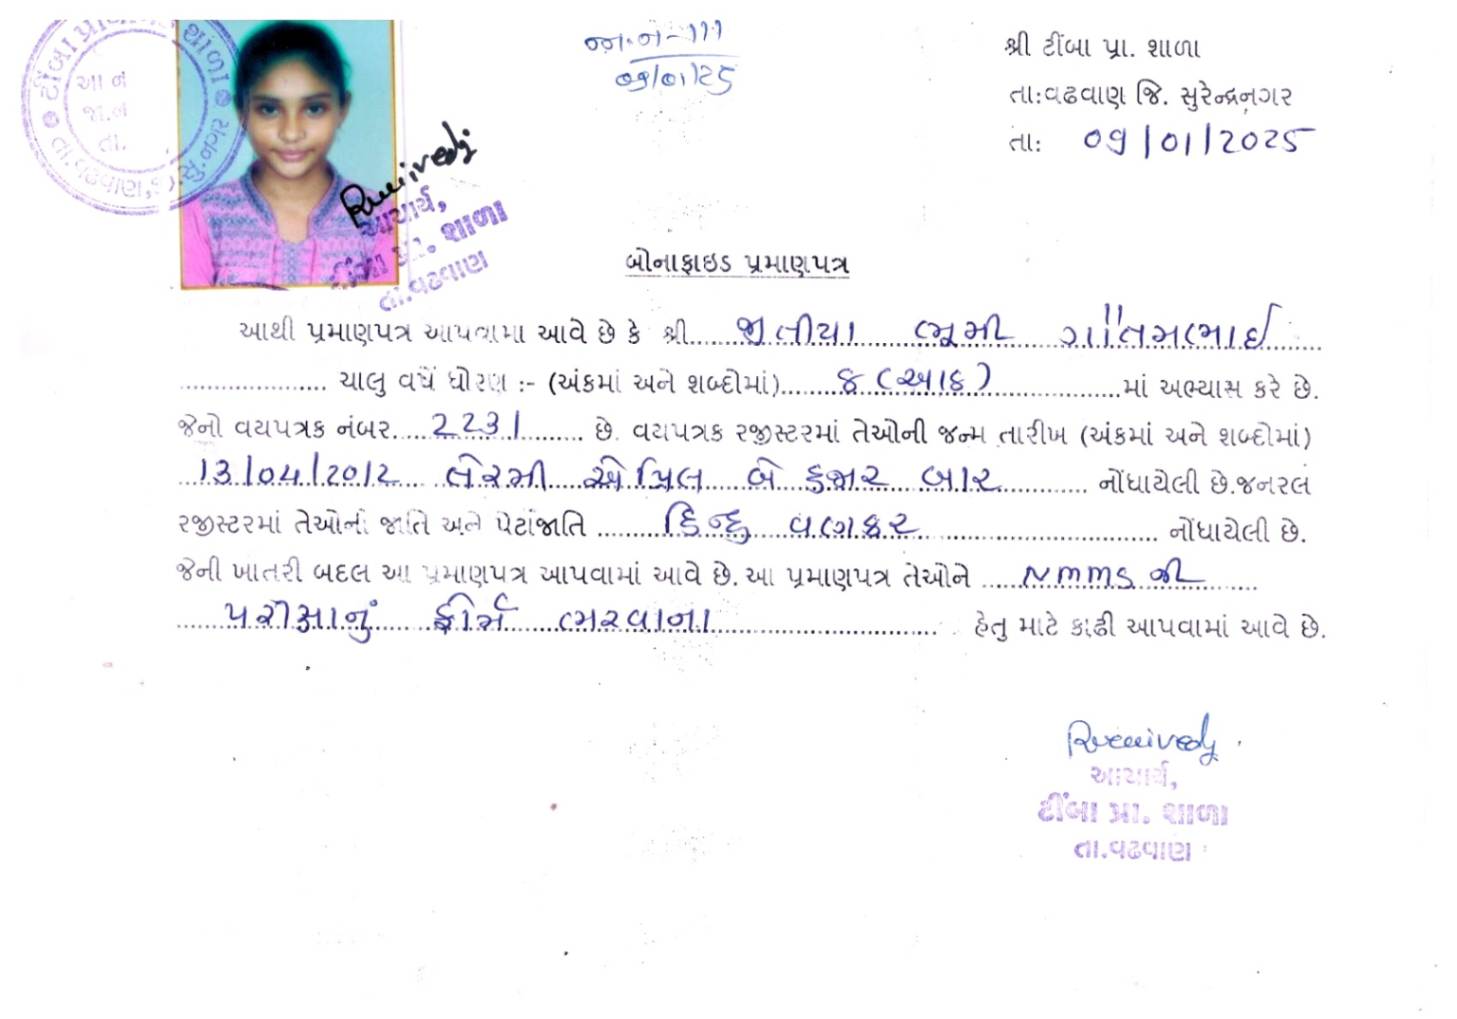 જા.ન-111
09/01/25
શ્રી ટીંબા પ્રા. શાળા
તા:વઢવાણ જિ. સુરેન્દ્રનગર
તા: 09/01/2025
ટીંબા પ્રા શાળા
આ નં
જા.નં
તા.
તા.વઢવાણ,
આચાર્ય,
ટીંબા પ્રા. શાળા
તા.વઢવાણ
બોનાફાઇડ પ્રમાણપત્ર
આથી પ્રમાણપત્ર આપવામા આવે છે કે શ્રી જીતીયા ભૂમી ગૌતમભાઈ
ચાલુ વર્ષે ધોરણ :- (અંકમાં અને શબ્દોમાં) ૪ (આઠ) માં અભ્યાસ કરે છે.
જેનો વયપત્રક નંબર 2231 છે. વયપત્રક રજીસ્ટરમાં તેઓની જન્મ તારીખ (અંકમાં અને શબ્દોમાં)
13/04/2012 તેરમી એપ્રિલ બે હજાર બાર નોંધાયેલી છે.જનરલ
રજીસ્ટરમાં તેઓની જાતિ અને પેટાજાતિ હિન્દુ વણકર નોંધાયેલી છે.
જેની ખાતરી બદલ આ પ્રમાણપત્ર આપવામાં આવે છે. આ પ્રમાણપત્ર તેઓને NMMS ની
પરીક્ષાનું ફોર્મ ભરવાના હેતુ માટે કાઢી આપવામાં આવે છે.
આચાર્ય,
ટીંબા પ્રા. શાળા
તા.વઢવાણ